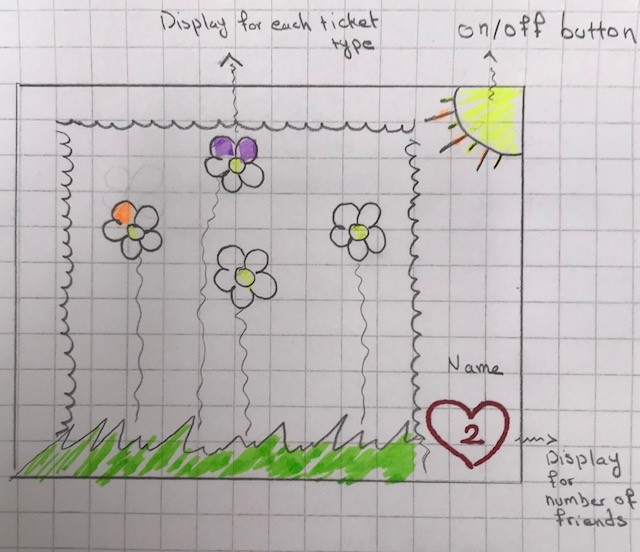 Display for each ticket
type
on/off button
Name
2
Display
for
number of
friends